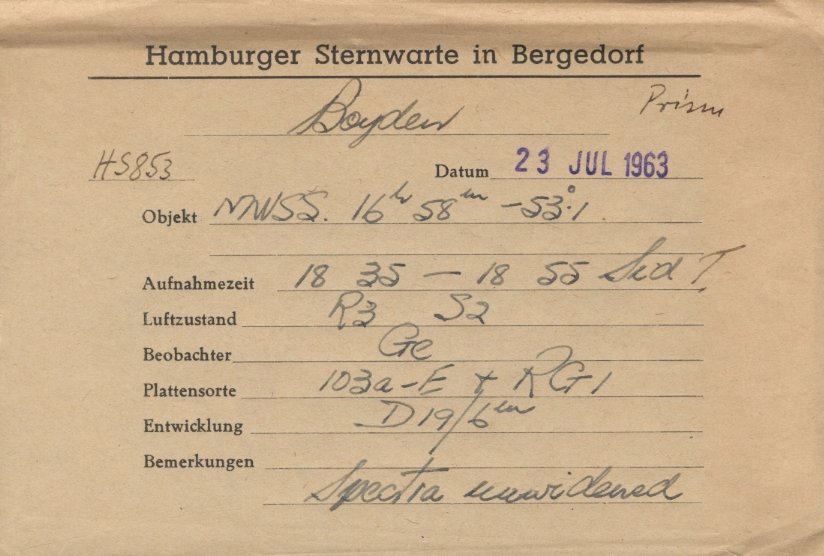 Hamburger Sternwarte in Bergedorf
Boyden Prism
HS853 Datum 23 JUL 1963
Objekt MWSS. 16h 58m -53°.1
Aufnahmezeit 18 35 — 18 55 Sid T.
Luftzustand R3 S2
Beobachter Ge
Plattensorte 103a-E + RG1
Entwicklung D19/6m
Bemerkungen
Spectra unwidened